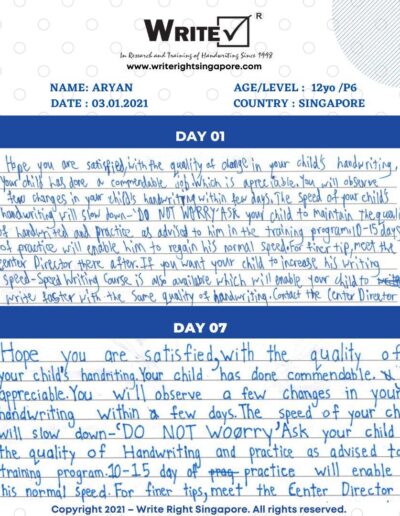 WRITE R
In Research and Training of Handwriting Since 1998
www.writerightsingapore.com
NAME: ARYAN AGE/LEVEL : 12yo /P6
DATE : 03.01.2021 COUNTRY : SINGAPORE
DAY 01
Hope you are satisfied, with the quality of change in your child's handwriting,
Your child has done a commendable job which is appreciable. You will observe
few changes in your child's handwriting within few days. The speed of your child's
handwriting will slow down-'DO NOT WORRY' Ask your child to maintain the quali
of handwrited and practice as advised to him in the training program; 10-15 days
of practice will enable him to regain his normal speed. For finer tip, meet the
center Director there after. If you want your child to increase his writing
speed-Speed Writing Course is also available which will enable your child to
write faster with the same quality of handwriting. Contact the Center Director
DAY 07
Hope you are satisfied, with the quality of
your child's handriting. Your child has done commendable.
appreciable. You will observe a few changes in your
handwriting within a few days. The speed of your ch
will slow down-'DO NOT WOorry' Ask your child
the quality of Handwriting and practice as advised to
training program. 10-15 day of practice will enable
his normal speed. For finer tips, meet the Center Director
Copyright 2021 – Write Right Singapore. All rights reserved.